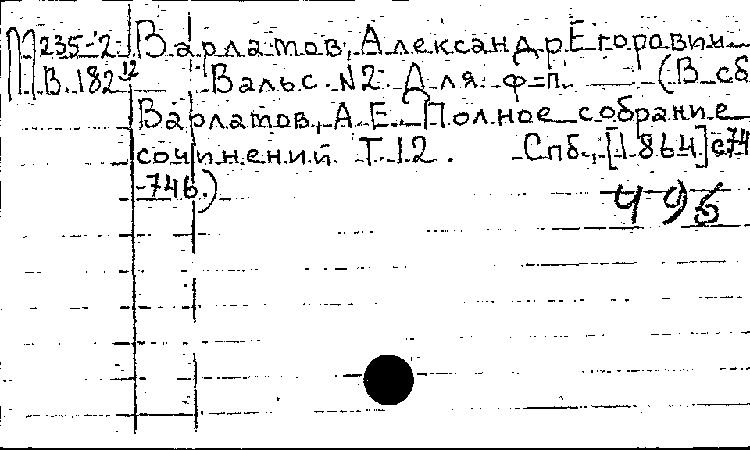 М 235-2 Варламов, Александр Егорович
В 182 12 Вальс N2. Для ф=п. (В сб
Варламов, А.Е. Полное собрание
сочинений Т.12. Спб., [1864] с74
-746.)
496